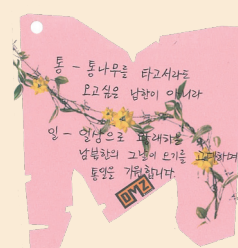 통 - 통나무를 타고서라도
오고싶은 남한이 아니라
일 - 일상으로 바래하는
남북한의 그날이 오기를 고대하며
통일을 기원합니다
DMZ